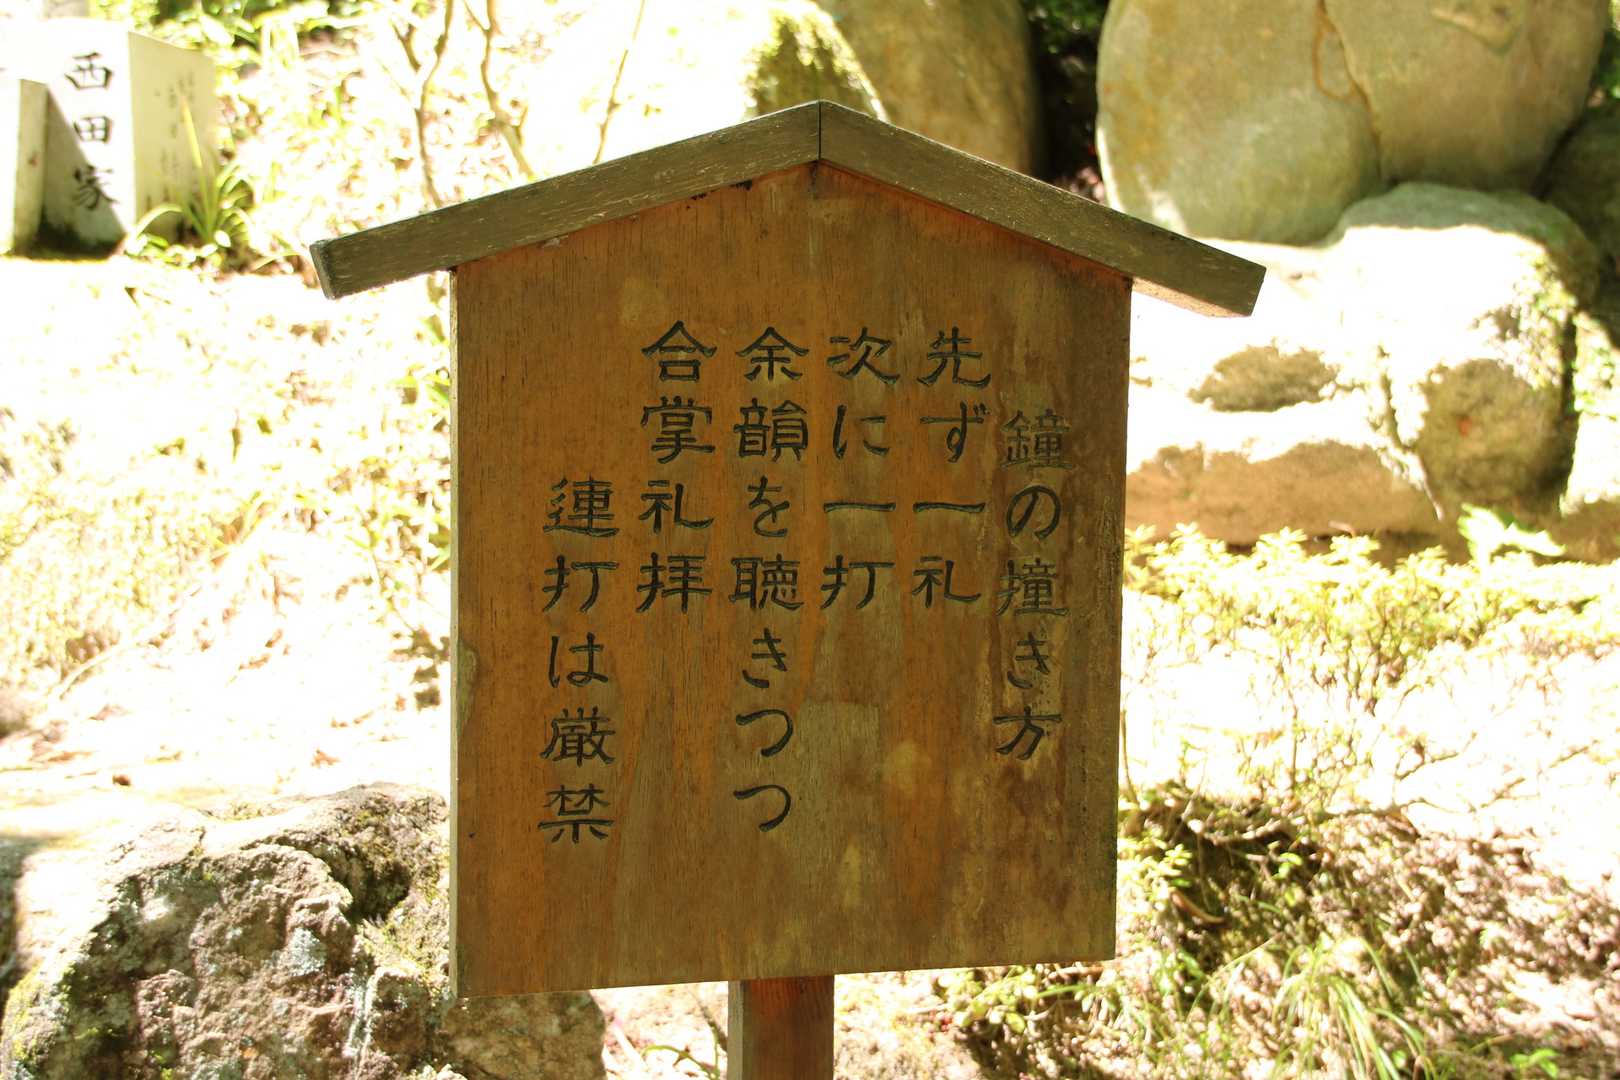 鐘の撞き方
先ず一礼
次に一打
余韻を聴きつつ
合掌礼拝
連打は厳禁
西田家